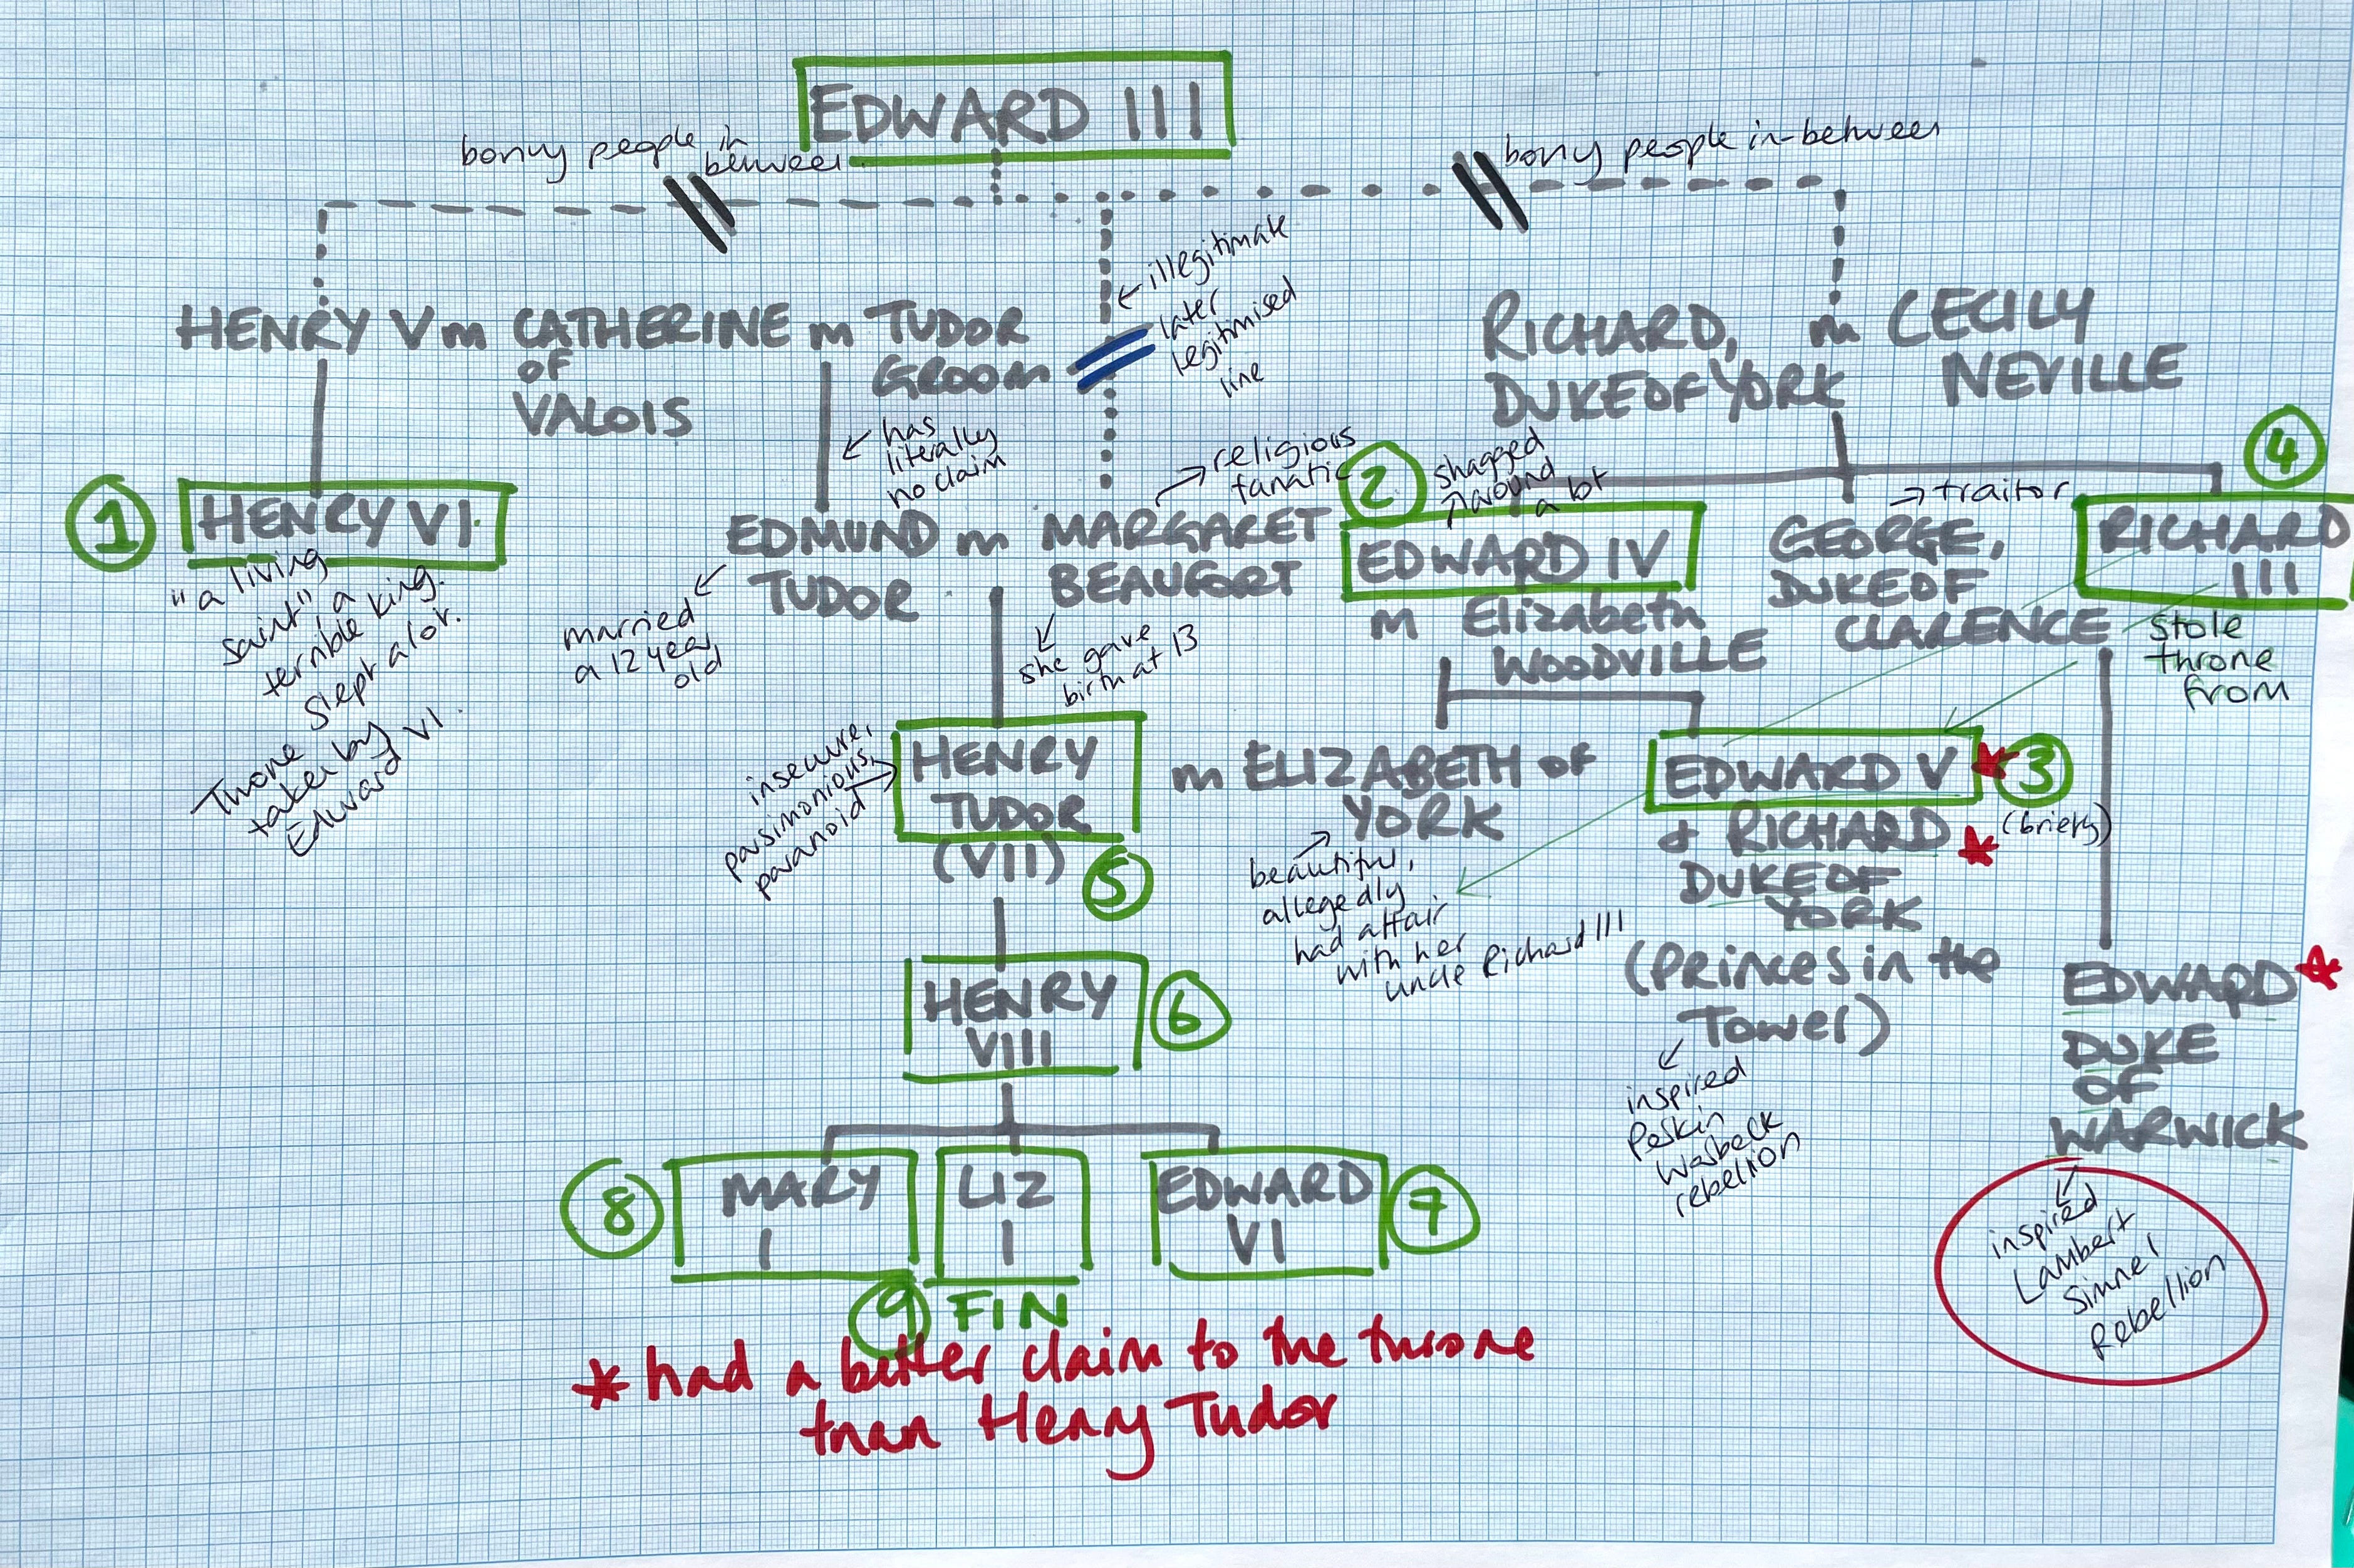 EDWARD III
borny people in
between
borny people in-between
illegitimate
later
legitimised
line
HENRY V m CATHERINE m TUDOR
OF
VALOIS
GROOM
RICHARD, m CECILY
DUKE OF YORK NEVILLE
has
literally
no claim
religious
fanatic
shagged
around
a lot
traitor
1
HENRY VI
"a living
saint", a
terrible king.
Slept alot.
Throne
taken by
Edward VI.
EDMUND m MARGARET
TUDOR BEAUFORT
married
a 12 year
old
she gave
birth at 13
2
EDWARD IV
m Elizabeth
WOODVILLE
GEORGE,
DUKE OF
CLARENCE
4
RICHARD
III
stole
throne
from
insecure,
parsimonious,
paranoid
HENRY
TUDOR
(VII)
5
m ELIZABETH OF
YORK
beautiful,
allegedly
had affair
with her
uncle Richard III
EDWARD V * 3
(briefly)
+ RICHARD *
DUKE OF
YORK
(Princes in the
Tower)
inspired
Peskin
Wasbeck
rebellion
EDWARD *
DUKE
OF
WARWICK
inspired
Lambert
Simnel
Rebellion
HENRY
VIII
6
8
MARY
I
LIZ
I
EDWARD
VI
7
9 FIN
* had a better claim to the throne
than Henry Tudor